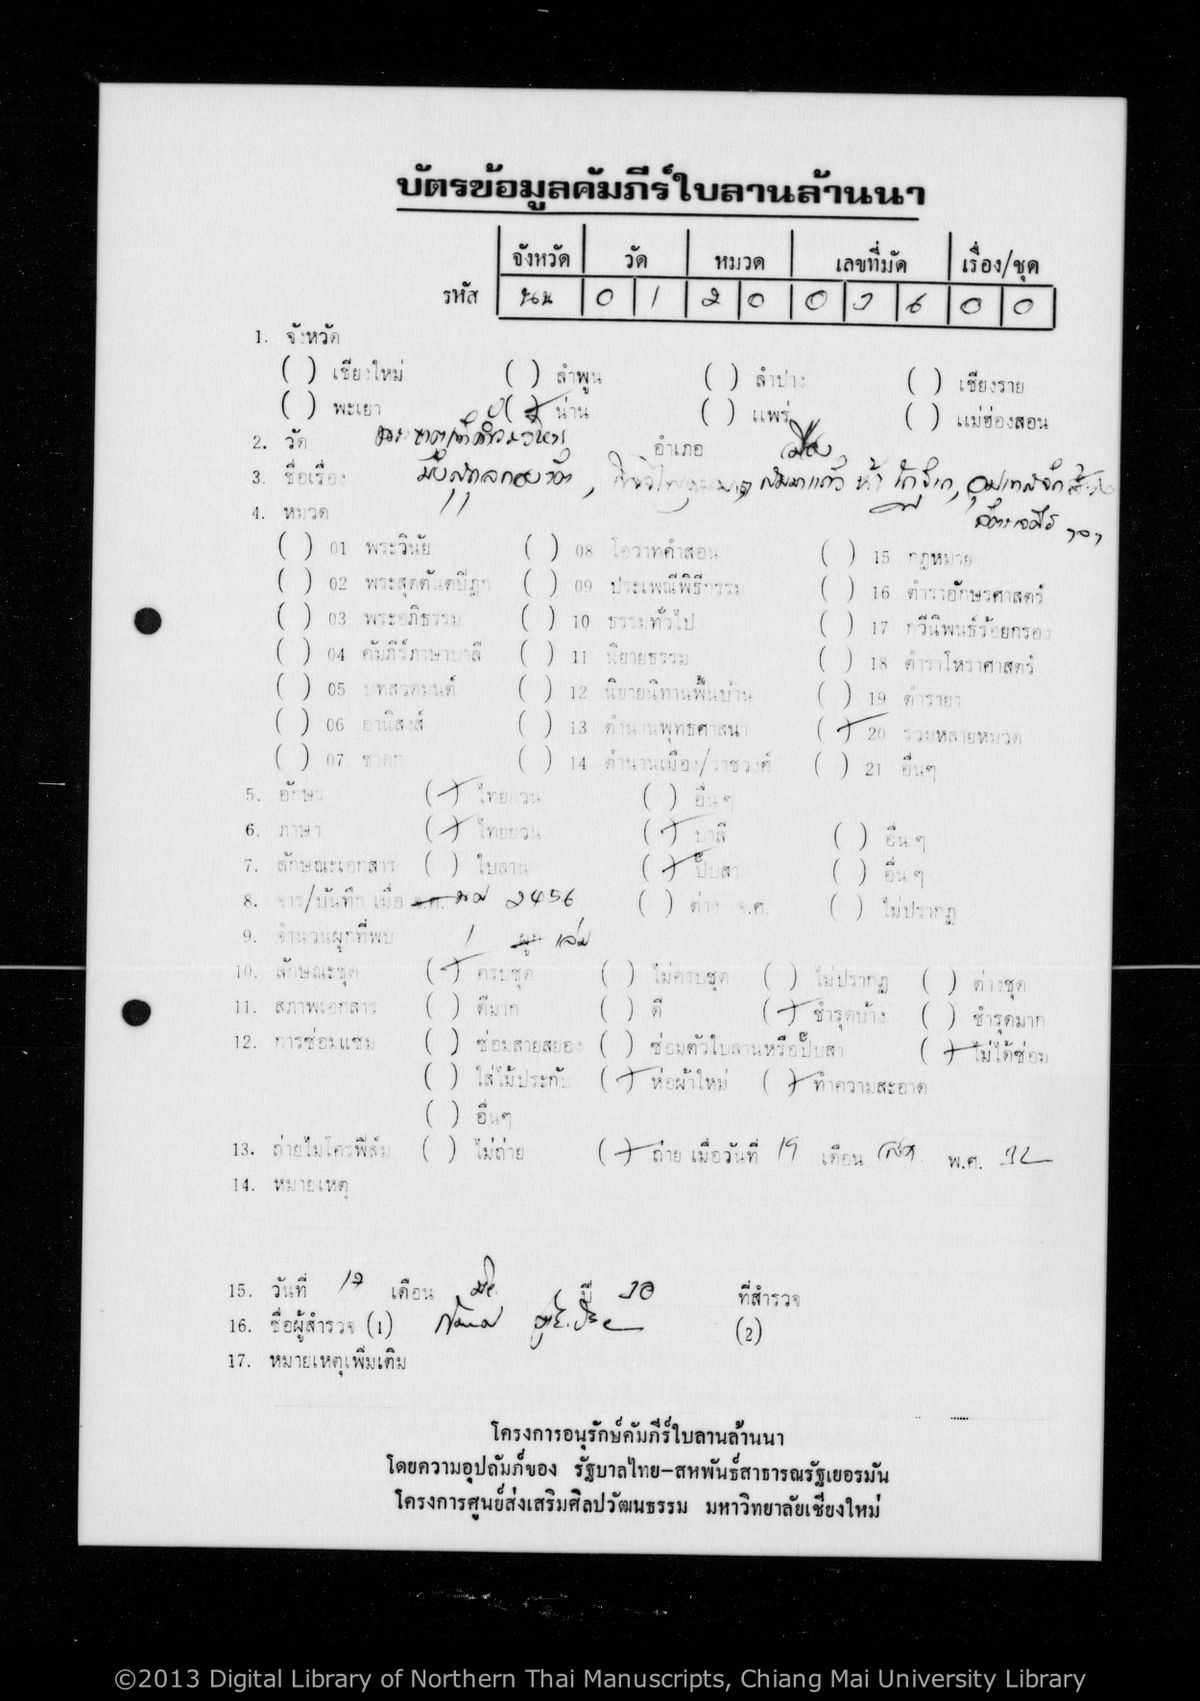 บัตรข้อมูลคัมภีร์ใบลานล้านนา
จังหวัด วัด หมวด เลขที่มัด เรื่อง/ชุด
รหัส นน 0 1 2 0 0 3 6 0 0
1. จังหวัด
( ) เชียงใหม่ ( ) ลำพูน ( ) ลำปาง ( ) เชียงราย
( ) พะเยา (/) น่าน ( ) แพร่ ( ) แม่ฮ่องสอน
2. วัด อำเภอ เมือง
3. ชื่อเรื่อง
4. หมวด
( ) 01 พระวินัย ( ) 08 โอวาทคำสอน ( ) 15 กฎหมาย
( ) 02 พระสุตตันตปิฎก ( ) 09 ประเพณีพิธีกรรม ( ) 16 ตำราอักษรศาสตร์
( ) 03 พระอภิธรรม ( ) 10 ธรรมทั่วไป ( ) 17 กวีนิพนธ์ร้อยกรอง
( ) 04 คัมภีร์ภาษาบาลี ( ) 11 นิยายธรรม ( ) 18 ตำราโหราศาสตร์
( ) 05 บทสวดมนต์ ( ) 12 นิยายนิทานพื้นบ้าน ( ) 19 ตำรายา
( ) 06 อานิสงส์ ( ) 13 ตำนานพุทธศาสนา (/) 20 รวมหลายหมวด
( ) 07 ชาดก ( ) 14 ตำนานเมือง/ราชวงศ์ ( ) 21 อื่นๆ
5. อักษร (/) ไทยยวน ( ) อื่น ๆ
6. ภาษา (/) ไทยยวน (/) บาลี ( ) อื่น ๆ
7. ลักษณะเอกสาร ( ) ใบลาน (/) ปั๊บสา ( ) อื่น ๆ
8. จาร/บันทึก เมื่อ จ.ศ. พศ 2456 ( ) ต่าง จ.ศ. ( ) ไม่ปรากฏ
9. จำนวนผูกที่พบ 1 ผูก เล่ม
10. ลักษณะชุด (/) ครบชุด ( ) ไม่ครบชุด ( ) ไม่ปรากฏ ( ) ต่างชุด
11. สภาพเอกสาร ( ) ดีมาก ( ) ดี (/) ชำรุดบ้าง ( ) ชำรุดมาก
12. การซ่อมแซม ( ) ซ่อมสายสยอง ( ) ซ่อมตัวใบลานหรือปั๊บสา (/) ไม่ได้ซ่อม
( ) ใส่ไม้ประกับ (/) ห่อผ้าใหม่ (/) ทำความสะอาด
( ) อื่นๆ
13. ถ่ายไมโครฟิล์ม ( ) ไม่ถ่าย (/) ถ่าย เมื่อวันที่ 19 เดือน พ.ศ. 32
14. หมายเหตุ
15. วันที่ 17 เดือน มิย. ปี 30 ที่สำรวจ
16. ชื่อผู้สำรวจ (1) (2)
17. หมายเหตุเพิ่มเติม
โครงการอนุรักษ์คัมภีร์ใบลานล้านนา
โดยความอุปถัมภ์ของ รัฐบาลไทย-สหพันธ์สาธารณรัฐเยอรมัน
โครงการศูนย์ส่งเสริมศิลปวัฒนธรรม มหาวิทยาลัยเชียงใหม่
©2013 Digital Library of Northern Thai Manuscripts, Chiang Mai University Library